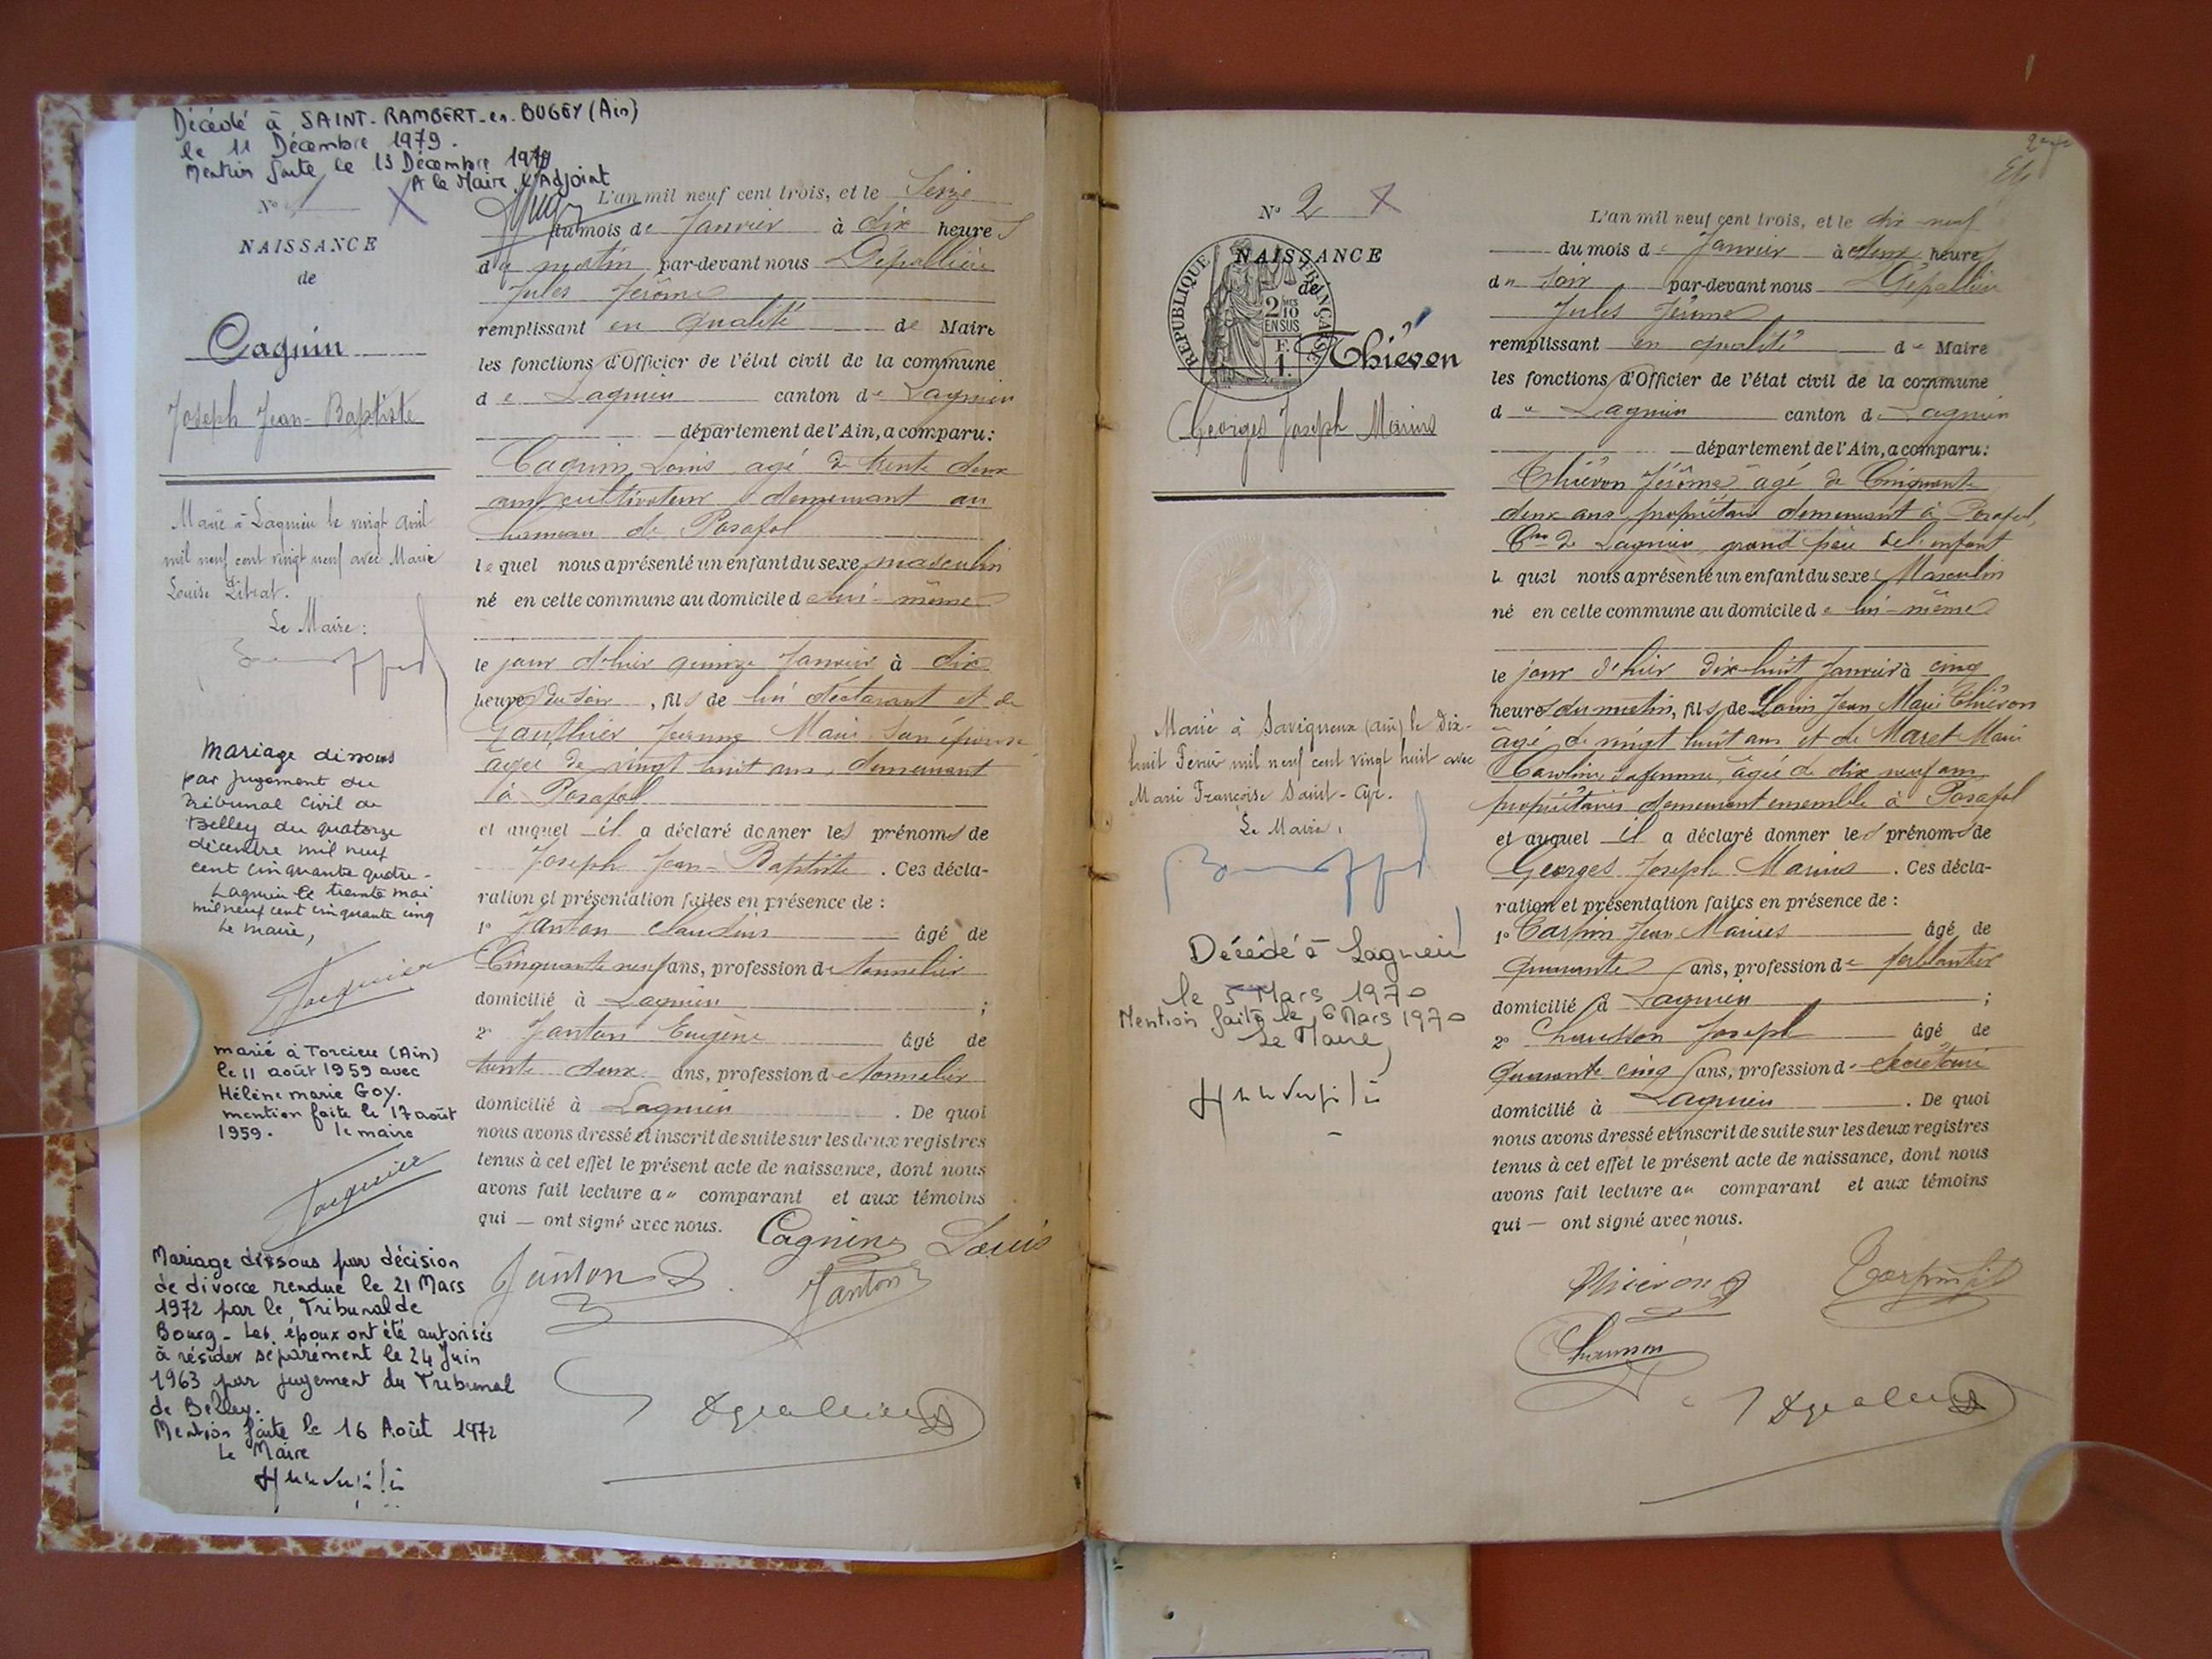 Décédé à SAINT-RAMBERT-en-BUGEY (Ain)
le 11 Décembre 1979.
Mention faite le 13 Décembre 1979
P le Maire, l'Adjoint
N° 1
NAISSANCE
de
Cagnin
Joseph Jean-Baptiste
Marié à Lagnieu le vingt avril
mil neuf cent vingt neuf avec Marie
Louise
Le Maire :
mariage dissous
par jugement du
Tribunal civil de
Belley du quatorze
décembre mil neuf
cent cinquante quatre -
Lagnieu le trente mai
mil neuf cent cinquante cinq
Le maire,
Jacquier
marié à Torcieu (Ain)
le 11 août 1959 avec
Hélène marie Goy.
mention faite le 17 août
1959. le maire
Jacquier
Mariage dissous par décision
de divorce rendue le 21 Mars
1972 par le Tribunal de
Bourg - Les époux ont été autorisés
à résider séparément le 24 Juin
1963 par jugement du Tribunal
de Belley.
Mention faite le 16 Août 1972
Le Maire
L'an mil neuf cent trois, et le Seize
du mois de Janvier à dix heures
du matin par-devant nous Dépallière
Jules Jérôme
remplissant en qualité de Maire
les fonctions d'Officier de l'état civil de la commune
de Lagnieu canton de Lagnieu
département de l'Ain, a comparu :
Cagnin Louis agé de trente deux
ans cultivateur demeurant au
hameau de Posafol
lequel nous a présenté un enfant du sexe masculin
né en cette commune au domicile de lui-même
le jour d'hier quinze Janvier à dix
heures du soir, fils de lui déclarant et de
Gauthier Jeanne Marie son épouse
agée de vingt huit ans, demeurant
à Posafol
et auquel il a déclaré donner les prénoms de
Joseph Jean-Baptiste. Ces décla-
ration et présentation faites en présence de :
1° Janton Claudius âgé de
Cinquante neuf ans, profession de tonnelier
domicilié à Lagnieu ;
2° Janton Eugène âgé de
trente deux ans, profession de tonnelier
domicilié à Lagnieu. De quoi
nous avons dressé et inscrit de suite sur les deux registres
tenus à cet effet le présent acte de naissance, dont nous
avons fait lecture au comparant et aux témoins
qui — ont signé avec nous.
Cagnin Louis
Janton
Janton
N° 2
NAISSANCE
de
RÉPUBLIQUE FRANÇAISE
2 10
EN SUS
F.
1.
Thiévon
Georges Joseph Marius
Marié à Savigneux (Ain) le Dix-
huit Février mil neuf cent vingt huit avec
Marie Françoise Saint-Cyr.
Le Maire,
Décédé à Lagnieu
le 5 Mars 1970
Mention faite le 6 Mars 1970
Le Maire,
L'an mil neuf cent trois, et le dix-neuf
du mois de Janvier à deux heures
du soir par-devant nous Dépallière
Jules Jérôme
remplissant en qualité de Maire
les fonctions d'Officier de l'état civil de la commune
de Lagnieu canton de Lagnieu
département de l'Ain, a comparu :
Thiévon Jérôme âgé de Cinquante
deux ans, propriétaire demeurant à Posafol,
Cne de Lagnieu, grand père de l'enfant
lequel nous a présenté un enfant du sexe Masculin
né en cette commune au domicile de lui-même
le jour d'hier dix-huit Janvier à cinq
heures du matin, fils de Louis Jean Marie Thiévon
âgé de vingt huit ans et de Maret Marie
Caroline sa femme, âgée de dix neuf ans
propriétaires demeurant ensemble à Posafol
et auquel il a déclaré donner les prénoms de
Georges Joseph Marius. Ces décla-
ration et présentation faites en présence de :
1° Carpin Jean Marius âgé de
Quarante ans, profession de ferblantier
domicilié à Lagnieu ;
2° Chausson Joseph âgé de
Quarante cinq ans, profession de Secrétaire
domicilié à Lagnieu. De quoi
nous avons dressé et inscrit de suite sur les deux registres
tenus à cet effet le présent acte de naissance, dont nous
avons fait lecture au comparant et aux témoins
qui — ont signé avec nous.
Thiévon
Chausson